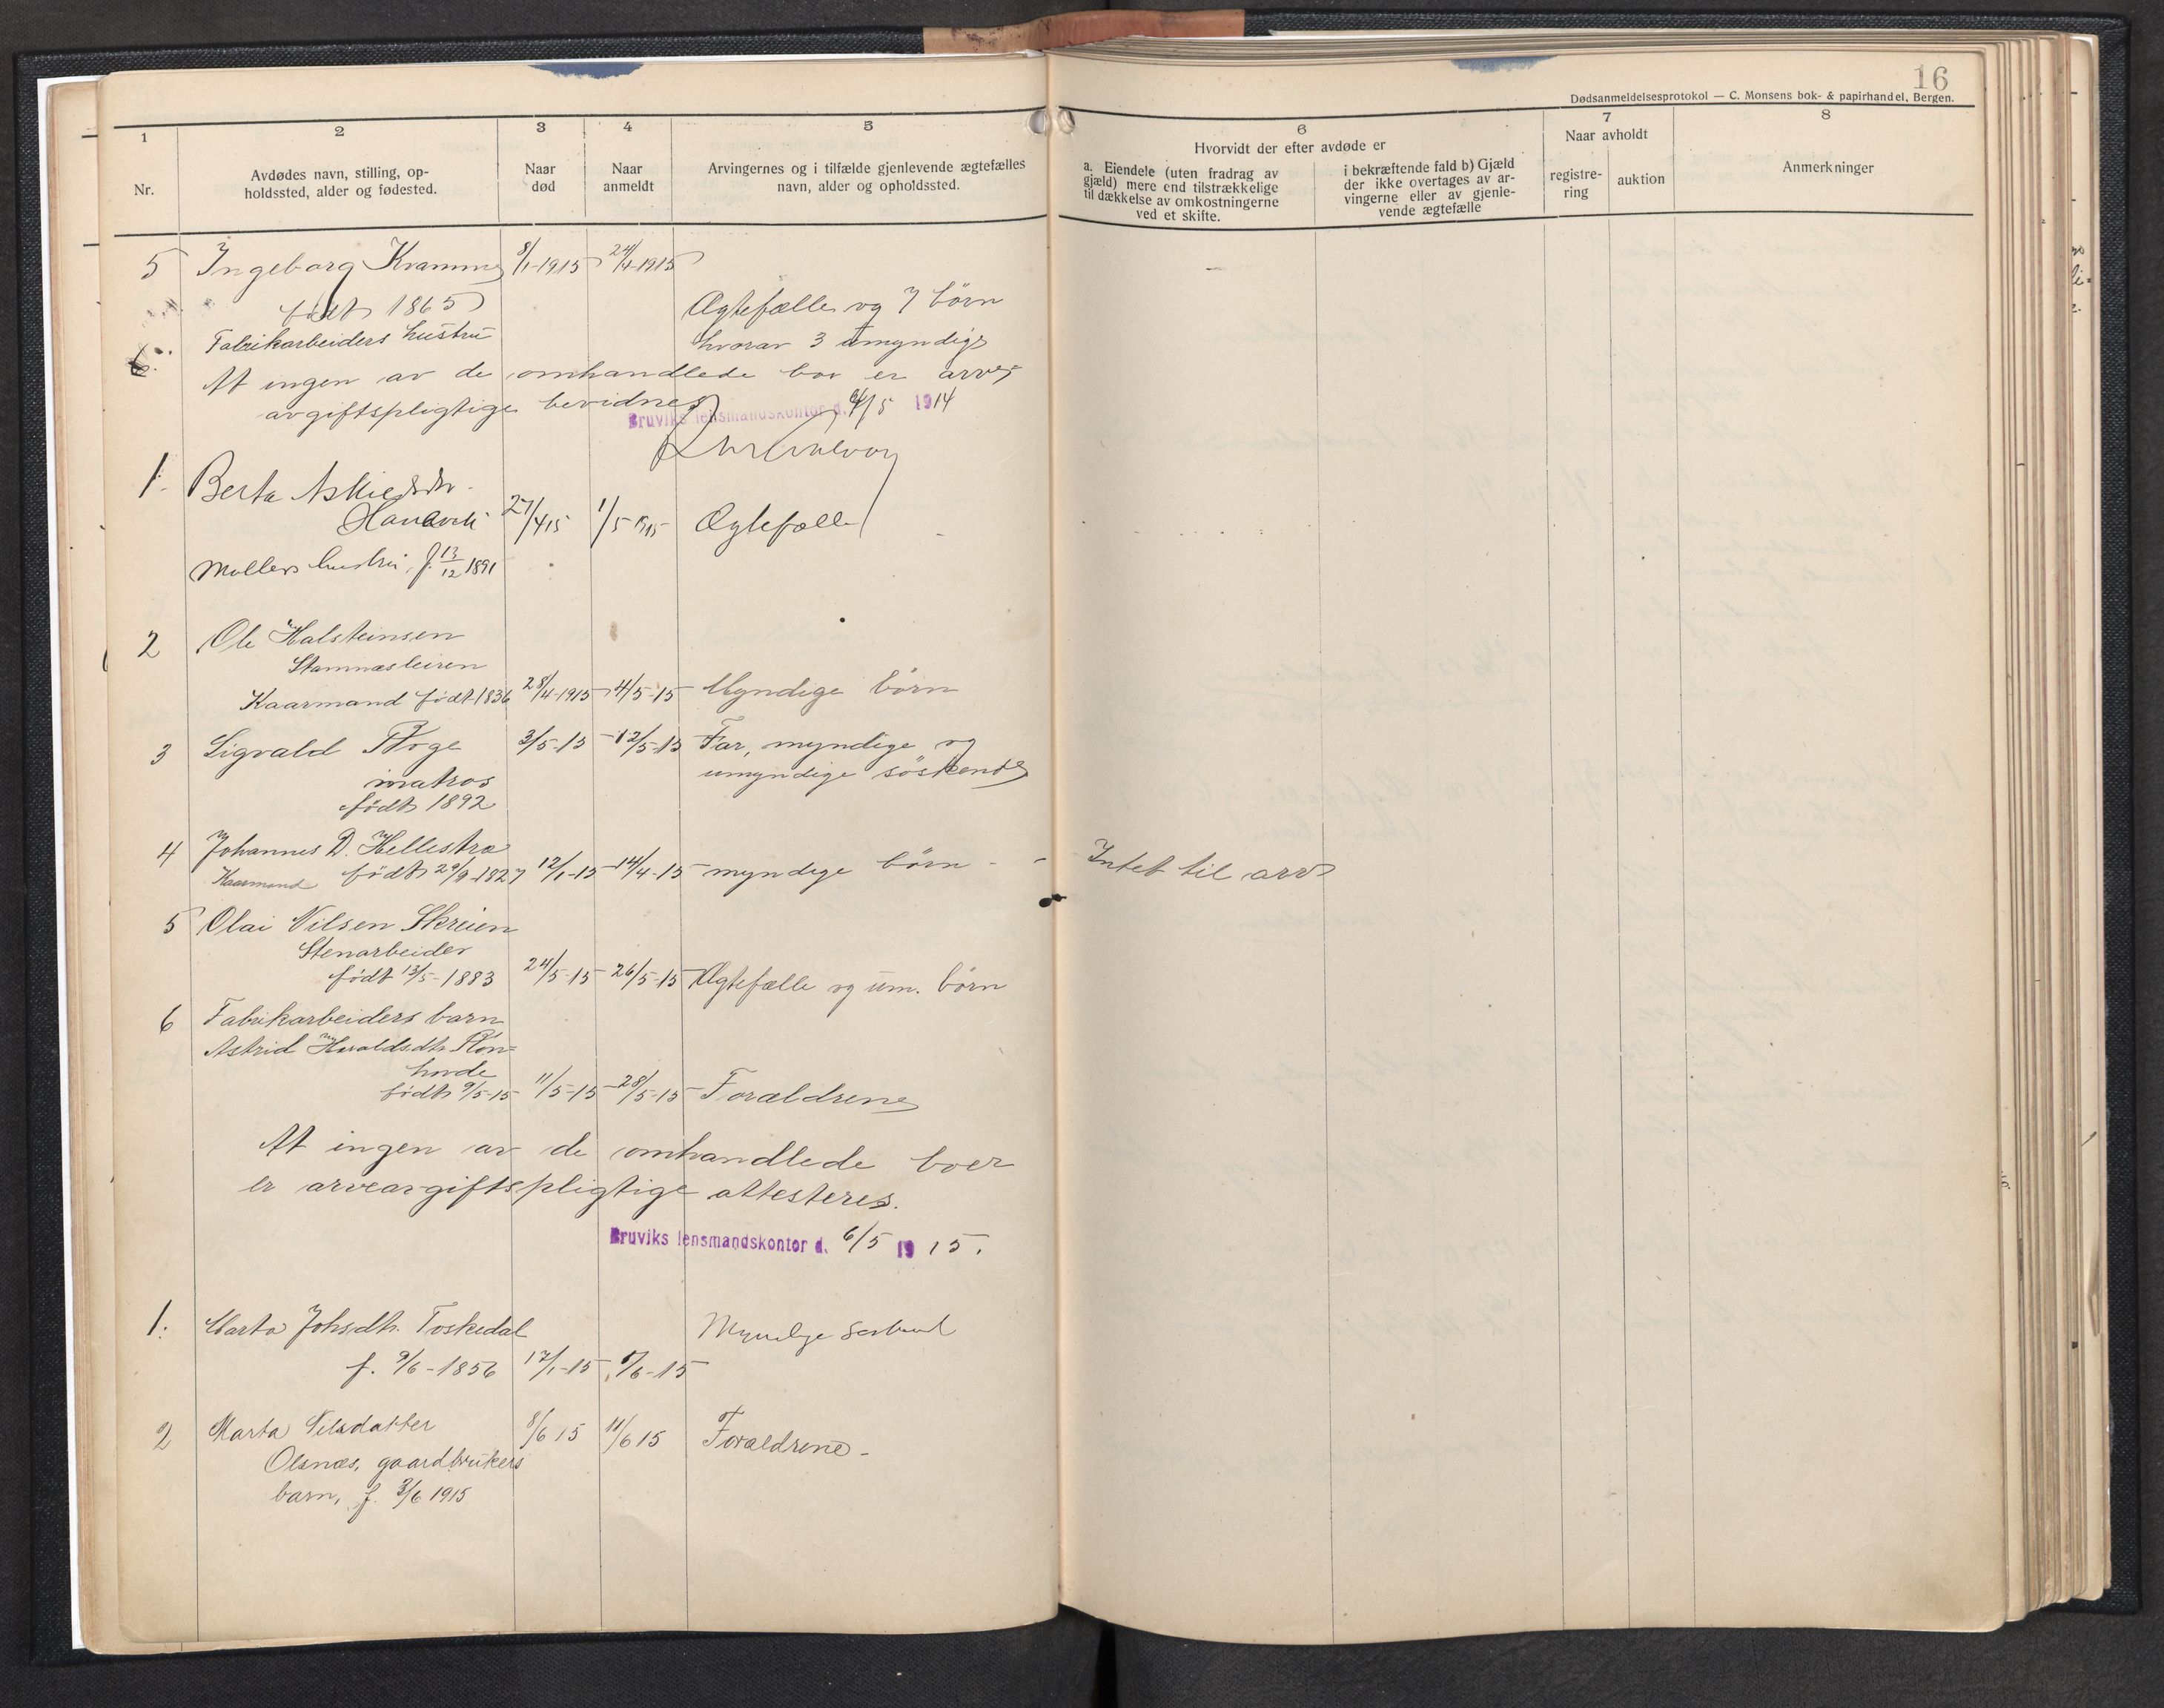 16
Dødsanmeldelsesprotokol — C. Monsens bok- & papirhandel, Bergen.
1 2 3 4 5 6 7 8
Nr.
Avdødes navn, stilling, op-
holdssted, alder og fødested.
Naar
død
Naar
anmeldt
Arvingernes og i tilfælde gjenlevende ægtefælles
navn, alder og opholdssted.
Hvorvidt der efter avdøde er
a. Eiendele (uten fradrag av
gjæld) mere end tilstrækkelige
til dækkelse av omkostningerne
ved et skifte.
i bekræftende fald b) Gjæld
der ikke overtages av ar-
vingerne eller av gjenle-
vende ægtefælle
Naar avholdt
registre-
ring
auktion
Anmerkninger
5 Ingeborg 8/1-1915 24/4-1915
født 1865 Ægtefælle og 7 börn
Fabrikarbeiders hustru hvorav 3 umyndige
At ingen av de omhandlede bor er arve-
avgiftspligtige bevidnes
Bruviks lensmandskontor d. /5 1914
1. Berta
27/4 15 1/5 1915 Ægtefælle
Møllers hustru, f. 13/12 1891
2 Ole Halsteinsen
Stamnæsleiren
Kaarmand født 1836 28/4-1915 4/5-15 Myndige börn
3 Sigvald 3/5-15 12/5-15 Far, myndige og
umyndige söskende
matros
født 1892
4 Johannes D. Hellestræ
Kaarmand født 29/9-1827 12/1-15 14/4-15 myndige börn - - Intet til arv
5 Olai Nilsen Skreien
Stenarbeider
født 13/5-1883 24/5-15 26/5-15 Ægtefælle og um. börn
6 Fabrikarbeiders barn
Astrid Haraldsdtr. Ron=
hovde
født 9/5-15 11/5-15 28/5-15 Forældrene
At ingen av de omhandlede boer
er arveavgiftspligtige attesteres.
Bruviks lensmandskontor d. 6/5 1915.
1. Marta Johsdtr. Toskedal Myndige
f. 9/6-1856 17/1-15 /6-15
2 Marta Nilsdatter 8/6 15 11/6 15 Forældrene -
Olsnæs, gaardbrukers
barn, f. 3/6 1915